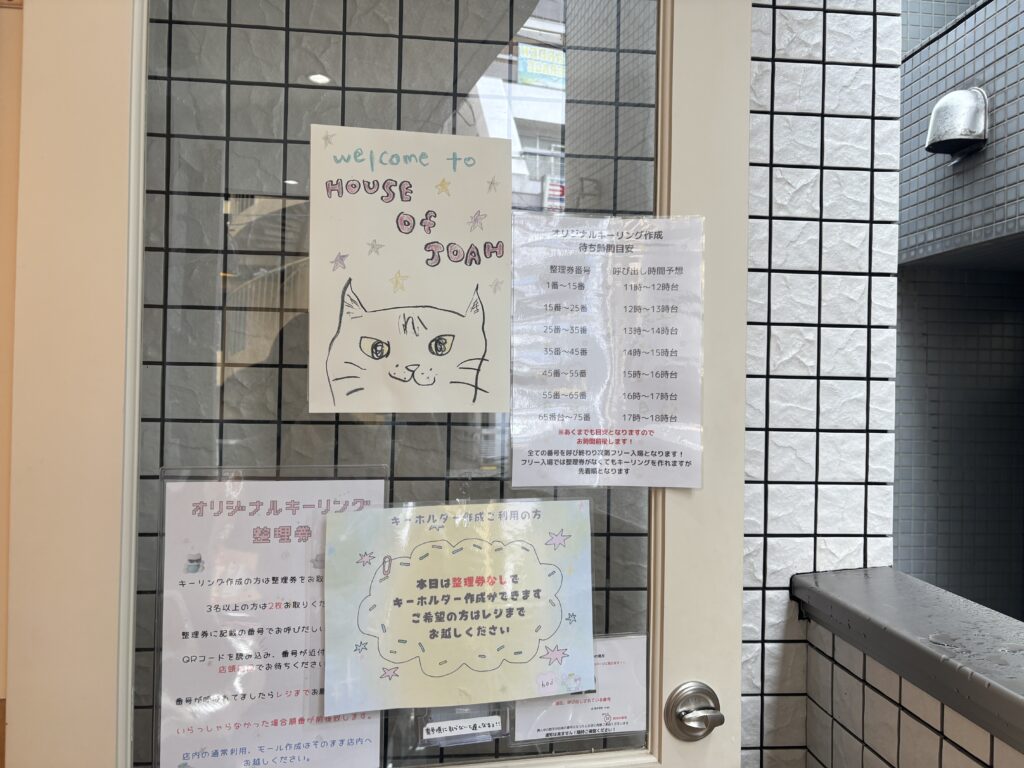 welcome to
HOUSE
Of
JOAH
オリジナルキーリング作成
待ち時間目安
整理券番号 呼び出し時間予想
1番～15番 11時～12時台
15番～25番 12時～13時台
25番～35番 13時～14時台
35番～45番 14時～15時台
45番～55番 15時～16時台
55番～65番 16時～17時台
65番台～75番 17時～18時台
※あくまでも目安となりますので
お時間前後します！
全ての番号を呼び終わり次第フリー入場となります！
フリー入場では整理券がなくてもキーリングを作れますが
先着順となります
オリジナルキーリング
整理券
キーリング作成の方は整理券をお取
3名以上の方は2枚お取りくだ
整理券に記載の番号でお呼びだし
QRコードを読み込み、番号が近付
店頭 でお待ちください
番号が呼ばれてましたらレジまでお
いらっしゃらなかった場合順番が前後致します。
店内の通常利用、モール作成はそのまま店内へ
お越しください。
キーホルダー作成ご利用の方
本日は整理券なしで
キーホルダー作成ができます
ご希望の方はレジまで
お越しください